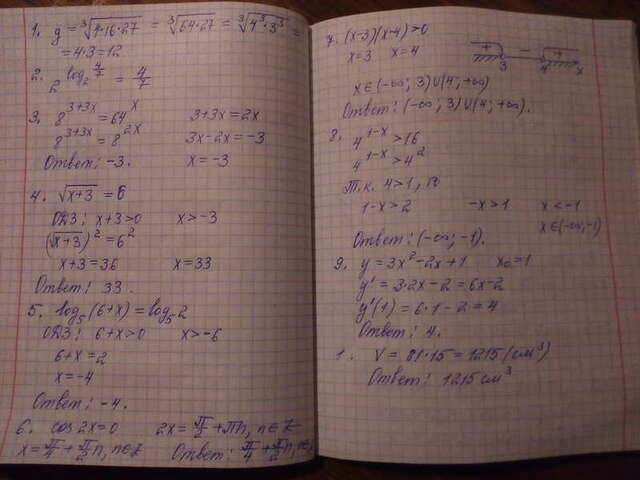 1. y = ∛4·16·27 = ∛64·27 = ∛4³·3³ =
= 4·3 = 12
2. 2^log₂ 4/7 = 4/7
3. 8^(3+3x) = 64^x 3+3x = 2x
8^(3+3x) = 8^(2x) 3x-2x = -3
Ответ: -3. x = -3
4. √x+3 = 6
ОДЗ: x+3>0 x>-3
(√x+3)² = 6²
x+3 = 36 x = 33
Ответ: 33.
5. log₅(6+x) = log₅2
ОДЗ: 6+x>0 x>-6
6+x = 2
x = -4
Ответ: -4.
6. cos 2x = 0 2x = π/2 + πn, n∈Z
x = π/4 + π/2 n, n∈Z Ответ: π/4 + π/2 n, n∈
7. (x-3)(x-4)>0
x = 3 x = 4
+ - +
3 4 x
x∈(-∞; 3)U(4; +∞)
Ответ: (-∞; 3)U(4; +∞).
8. 4^(1-x) > 16
4^(1-x) > 4²
Т.к. 4>1, то
1-x>2 -x>1 x<-1
x∈(-∞;-1)
Ответ: (-∞; -1).
9. y = 3x²-2x+1 x₀=1
y' = 3·2x-2 = 6x-2
y'(1) = 6·1-2 = 4
Ответ: 4.
1. V = 81·15 = 1215 (см³)
Ответ: 1215 см³